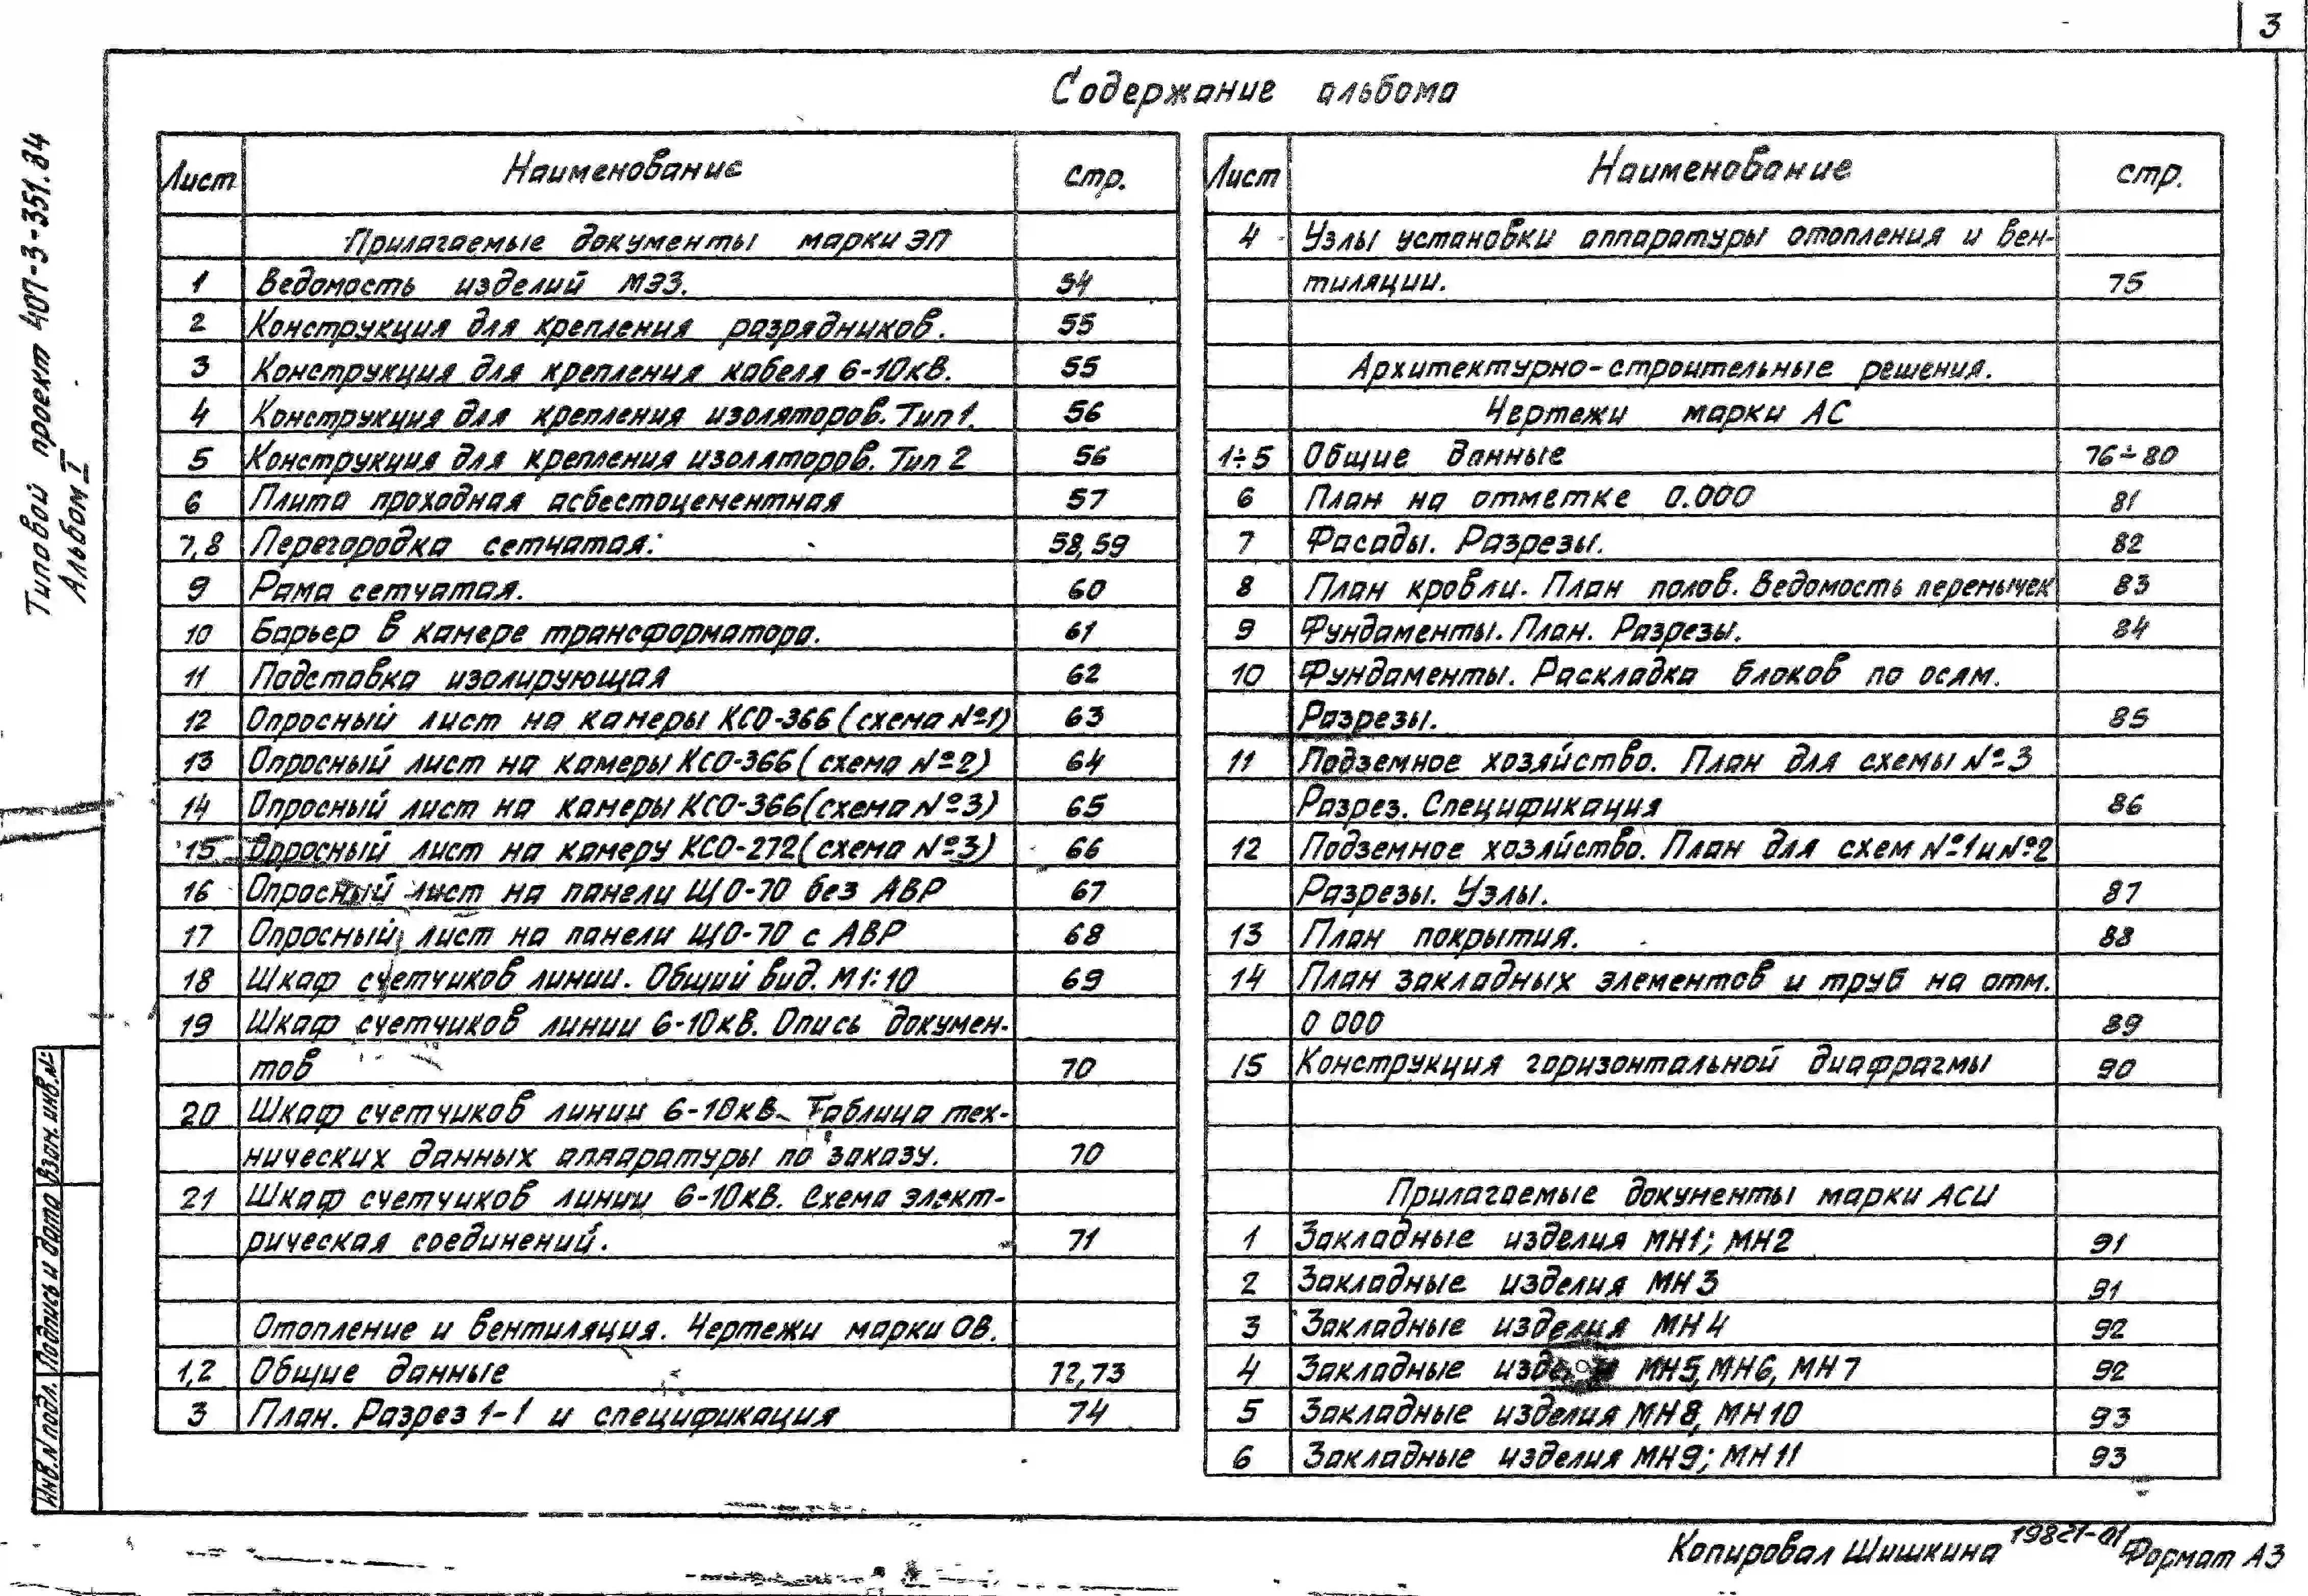 3
Содержание альбома
Типовой проект 407-3-351.84
Альбом I
Лист Наименование стр.
Прилагаемые документы марки ЭП
1 Ведомость изделий МЭЗ. 54
2 Конструкция для крепления разрядников. 55
3 Конструкция для крепления кабеля 6-10кВ. 55
4 Конструкция для крепления изоляторов. Тип 1. 56
5 Конструкция для крепления изоляторов. Тип 2 56
6 Плита проходная асбестоцементная 57
7,8 Перегородка сетчатая. 58,59
9 Рама сетчатая. 60
10 Барьер в камере трансформатора. 61
11 Подставка изолирующая 62
12 Опросный лист на камеры КСО-366 (схема №1) 63
13 Опросный лист на камеры КСО-366 (схема №2) 64
14 Опросный лист на камеры КСО-366 (схема №3) 65
15 Опросный лист на камеру КСО-272 (схема №3) 66
16 Опросный лист на панели ЩО-70 без АВР 67
17 Опросный лист на панели ЩО-70 с АВР 68
18 Шкаф счетчиков линии. Общий вид. М1:10 69
19 Шкаф счетчиков линии 6-10кВ. Опись докумен-
тов 70
20 Шкаф счетчиков линии 6-10кВ. Таблица тех-
нических данных аппаратуры по заказу. 70
21 Шкаф счетчиков линии 6-10кВ. Схема элект-
рическая соединений. 71
Отопление и вентиляция. Чертежи марки ОВ.
1,2 Общие данные 72,73
3 План. Разрез 1-1 и спецификация 74
Лист Наименование стр.
4 Узлы установки аппаратуры отопления и вен-
тиляции. 75
Архитектурно-строительные решения.
Чертежи марки АС
1÷5 Общие данные 76÷80
6 План на отметке 0.000 81
7 Фасады. Разрезы. 82
8 План кровли. План полов. Ведомость перемычек 83
9 Фундаменты. План. Разрезы. 84
10 Фундаменты. Раскладка блоков по осям.
Разрезы. 85
11 Подземное хозяйство. План для схемы №3
Разрез. Спецификация 86
12 Подземное хозяйство. План для схем №1 и №2
Разрезы. Узлы. 87
13 План покрытия. 88
14 План закладных элементов и труб на отм.
0 000 89
15 Конструкция горизонтальной диафрагмы 90
Прилагаемые документы марки АСИ
1 Закладные изделия МН1; МН2 91
2 Закладные изделия МН3 91
3 Закладные изделия МН4 92
4 Закладные изделия МН5, МН6, МН7 92
5 Закладные изделия МН8, МН10 93
6 Закладные изделия МН9; МН11 93
Инв.№ подл. Подпись и дата Взам. инв.№
Копировал Шишкина 19821-01 Формат А3